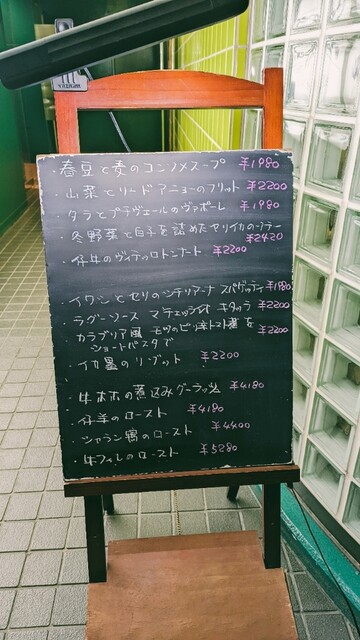 ・春豆と麦のコンソメスープ ¥1980
・山菜とリードアニョーのフリット ¥2200
・タラとプラヴェールのヴァポーレ ¥1980
・冬野菜と白子を詰めたヤリイカのソテー ¥2420
・仔牛のヴィテッロトンナート ¥2200
・イワシとセリのシチリアーナ スパゲッティ ¥1980
・ラグーソース マチェラジオ キタッラ ¥2200
・カラブリア風 モツのピリ辛トマト煮を ¥2200
ショートパスタで
・イカ墨のリゾット ¥2200
・牛ホホの煮込みグーラッシュ ¥4180
・仔羊のロースト ¥4180
・シャラン鴨のロースト ¥4400
・牛フィレのロースト ¥5280